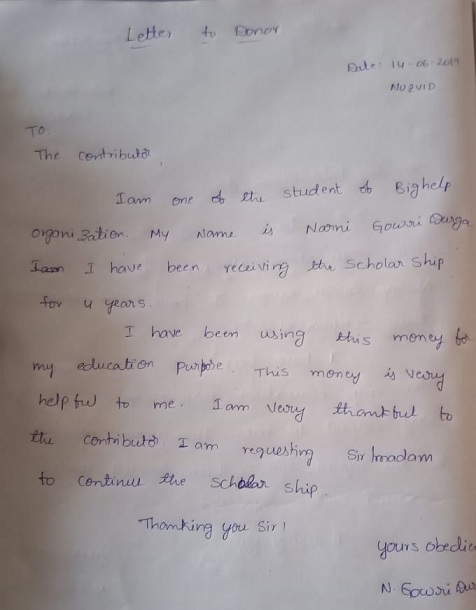 Letter to Donor
Date: 14-06-2019
NUZVID
TO
The contributor,
I am one of the student of Bighelp
organization. My Name is Naomi Gowsri Durga
I have been receiving the Scholar Ship
for 4 years.
I have been using this money for
my education purpose. This money is Very
helpful to me. I am Very thankful to
the contributor. I am requesting Sir/madam
to continue the scholar ship.
Thanking you Sir!
yours obedie
N. Gowsri Dur